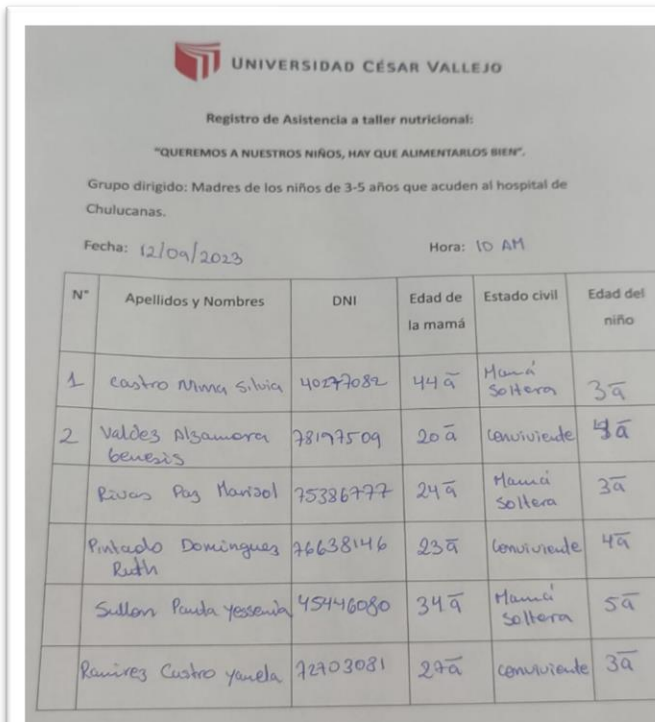 UNIVERSIDAD CÉSAR VALLEJO
Registro de Asistencia a taller nutricional:
"QUEREMOS A NUESTROS NIÑOS, HAY QUE ALIMENTARLOS BIEN".
Grupo dirigido: Madres de los niños de 3-5 años que acuden al hospital de
Chulucanas.
Fecha: 12/09/2023 Hora: 10 AM
N° Apellidos y Nombres DNI Edad de la mamá Estado civil Edad del niño
1 Castro Nima Silvia 40277082 44 a Mamá Soltera 3 a
2 Valdez Alzamora Genesis 78197509 20 a Conviviente 4 a
Rivas Paz Marisol 75386777 24 a Mamá Soltera 3 a
Pintado Dominguez Ruth 76638146 23 a Conviviente 4 a
Sullon Panta Yessenia 45446080 34 a Mamá Soltera 5 a
Ramirez Castro Yanela 72703081 27 a Conviviente 3 a